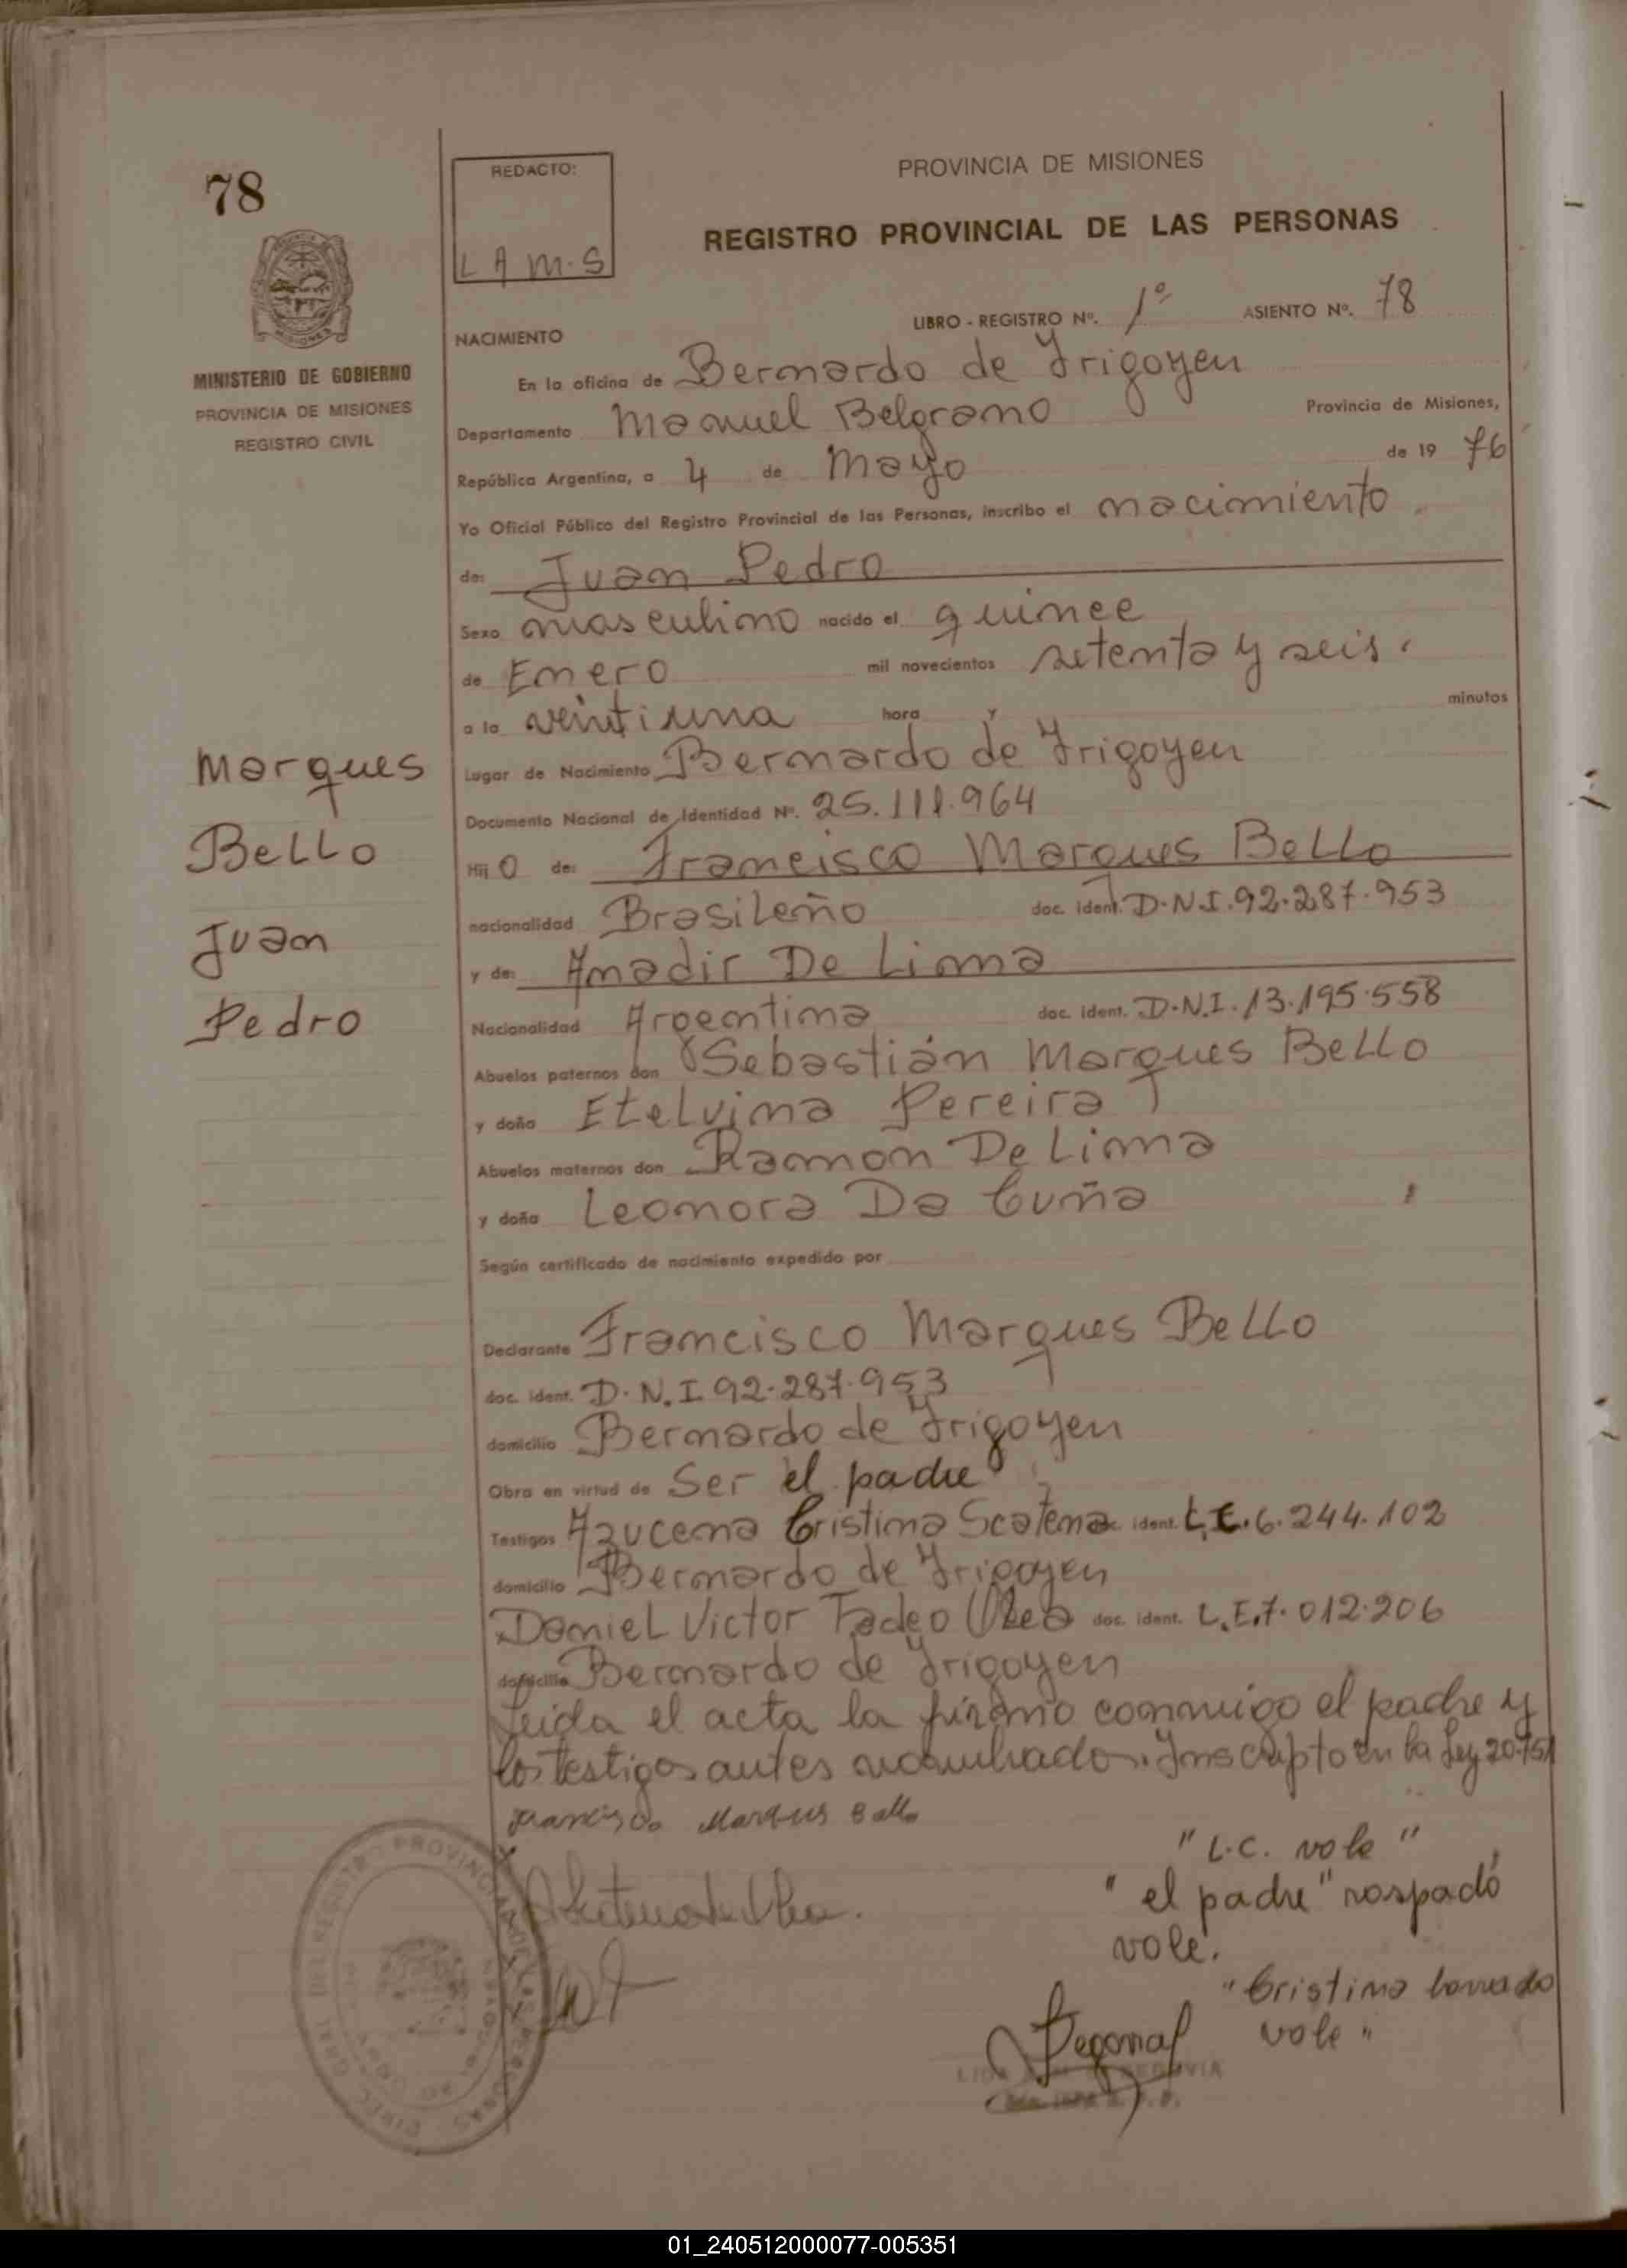 78
REDACTO:
L A M. S
PROVINCIA DE MISIONES
REGISTRO PROVINCIAL DE LAS PERSONAS
MINISTERIO DE GOBIERNO
PROVINCIA DE MISIONES
REGISTRO CIVIL
LIBRO - REGISTRO Nº. 1º ASIENTO Nº. 78
NACIMIENTO
En la oficina de Bernardo de Irigoyen
Departamento Manuel Belgrano Provincia de Misiones,
República Argentina, a 4 de Mayo de 19 76
Yo Oficial Público del Registro Provincial de las Personas, inscribo el nacimiento
de: Juan Pedro
Sexo masculino nacido el quince
de Enero mil novecientos setenta y seis.
a la veintiuna hora y minutos
Marques
Bello
Juan
Pedro
Lugar de Nacimiento Bernardo de Irigoyen
Documento Nacional de Identidad Nº. 25.111.964
Hij o de: Francisco Marques Bello
nacionalidad Brasileño doc. ident. D.N.I. 92.287.953
y de: Amadir De Lima
Nacionalidad Argentina doc. ident. D.N.I. 13.195.558
Abuelos paternos don Sebastián Marques Bello
y doña Etelvina Pereira
Abuelos maternos don Ramón De Lima
y doña Leonora Da Cuña
Según certificado de nacimiento expedido por
Declarante Francisco Marques Bello
doc. ident. D.N.I. 92.287.953
domicilio Bernardo de Irigoyen
Obra en virtud de Ser el padre
Testigos Azucena Cristina Scatena doc. ident. L.C. 6.244.102
domicilio Bernardo de Irigoyen
Daniel Victor Tadeo doc. ident. L.E. 7.012.206
domicilio Bernardo de Irigoyen
Leida el acta la firma conmigo el padre y
los testigos antes nombrados. Inscripto en la Ley 20.751
Francisco Marques Bello
"L.C. vale"
"el padre" raspado
vale.
"Cristina borrado
vale"
01_240512000077-005351